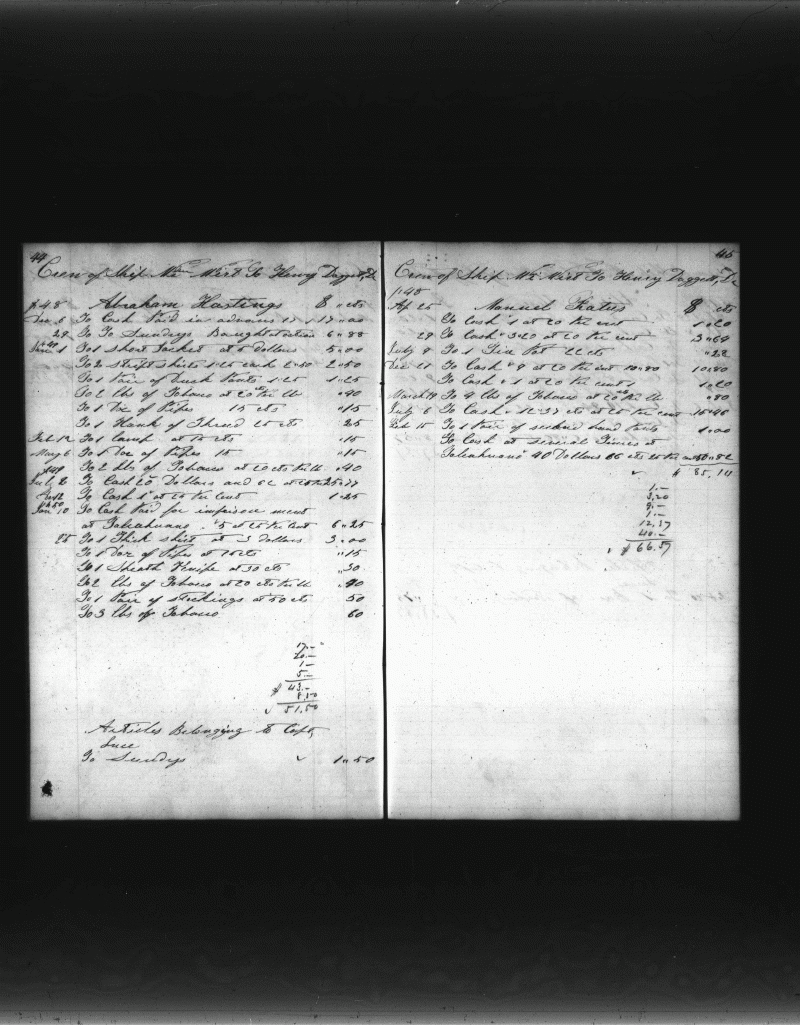 44
Crew of Ship Wm Wirt To Henry Daggett, Dr
1848 Abraham Hastings $ cts
Dec 5 To Cash Paid in advance 17 17 " 00
29 To To Sundrys Baught at auction 6 " 88
1849 Jan 1 To 1 short Jacket at 5 dollars 5 " 00
To 2 stript shirts 1.25 each 2"50 2 " 50
To 1 Pair of Duck Pants 1.25 1 " 25
To 2 lbs of Tobaco at 20 cts the lb " 40
To 1 Doz of Pipes 15 cts " 15
To 1 Hank of Thread 25 cts 25
Feb 12 To 1 Lamp at 15 cts " 15
May 6 To 1 Doz of Pipes 15 " 15
1849 To 2 lbs of Tobacco at 20 cts the lb " 40
July 8 To Cash 20 Dollars and 62 at 25 25 " 77
To Cash 1 " at 25 the cent 1 " 25
1850 Jan 10 To Cash Paid for imprison ment
at Talcahuano . " 5 at 25 the cent 6 " 25
25 To 1 Thick shirt at 3 dollars 3 " 00
To 1 Doz of Pipes at 15 cts " 15
To 1 Sheath Knife at 30 cts " 30
To 2 lbs of Tobaco at 20 cts the lb " 40
To 1 Pair of stockings at 50 cts 50
To 3 lbs of Tobaco 60
17.-
20.-
1 -
5.-
$ 43.-
8.50
51.50
Articles Belonging to Capt,
Luce
To Sundrys 1 " 50
45
Crew of Ship Wm Wirt To Henry Daggett, Dr
1848
Ap 25 Manuel $ cts
To Cash " 1 at 20 the cent 1 " 20
29 To Cash " 3.20 at 20 the cent 3 " 64
July 8 To 1 Tin Pot 22 cts " 22
Dec 21 To Cash " 9 at 20 the cent 10 " 80 10 " 80
To Cash " 1 at 20 the cent 1 " 20
March 19 To 4 lbs of Tobaco at 20 cts the lb " 80
July 6 To Cash " 12.37 cts at 25 the cent 15 " 46
Feb 15 To 1 Pair of second hand Pants 1 " 00
To Cash at several Times at
Talcahuano 40 Dollars 66 cts 25 the cent 50 " 82
$ 85,14
1.-
3,20
9.-
1.-
12,37
40.-
$ 66.57